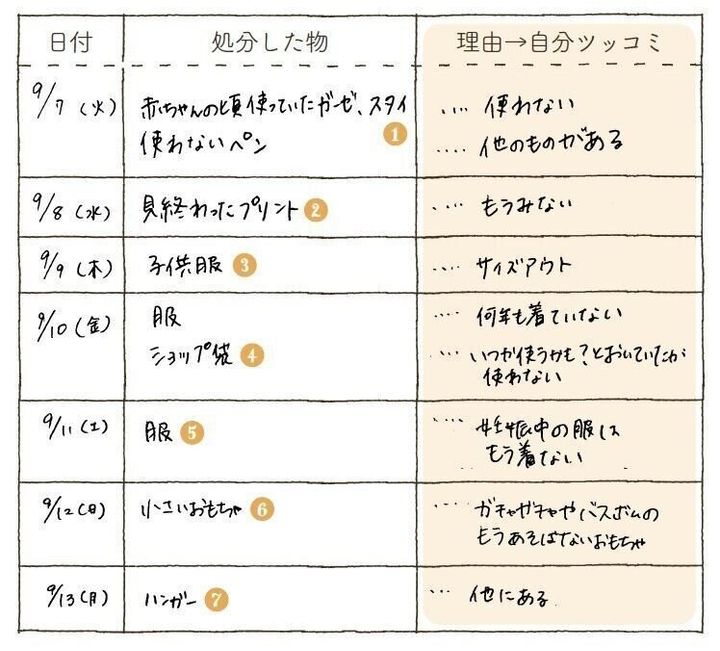 日付 処分した物 理由→自分ツッコミ
9/7(火) 赤ちゃんの頃使っていたガーゼ、スタイ ‥‥ 使わない
使わないペン 1 ‥‥ 他のものがある
9/8(水) 見終わったプリント 2 ‥‥ もうみない
9/9(木) 子供服 3 ‥‥ サイズアウト
9/10(金) 服 ‥‥ 何年も着ていない
ショップ袋 4 ‥‥ いつか使うかも?とおいていたが
使わない
9/11(土) 服 5 ‥‥ 妊娠中の服は
もう着ない
9/12(日) 小さいおもちゃ 6 ‥‥ ガチャガチャやバスボムの
もうあそばないおもちゃ
9/13(月) ハンガー 7 ‥‥ 他にある